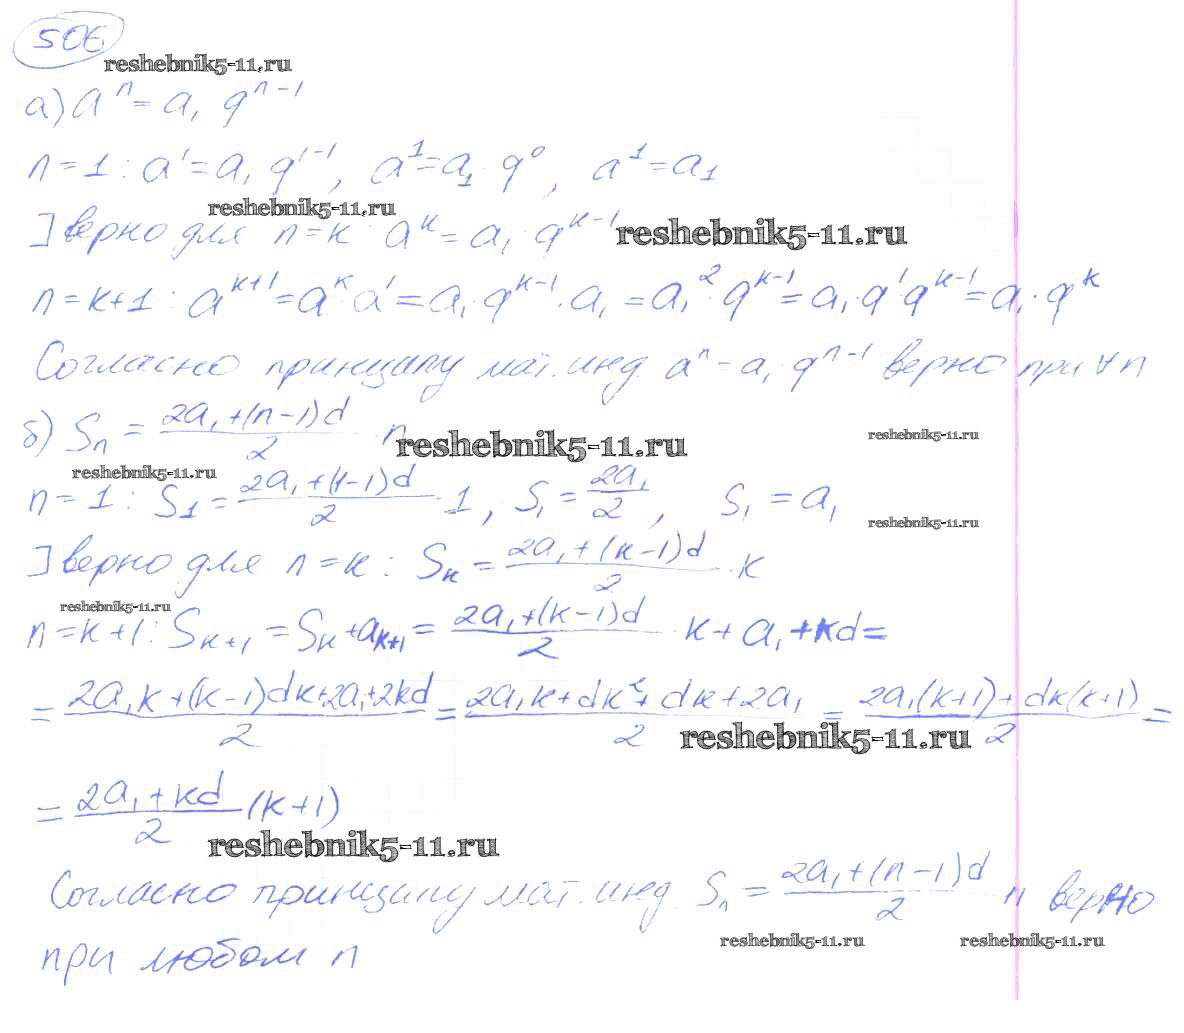 506
reshebnik5-11.ru
а) aⁿ = a₁ qⁿ⁻¹
n = 1 : a¹ = a₁ q¹⁻¹, a¹ = a₁ · q⁰, a¹ = a₁
reshebnik5-11.ru
] верно для n = k : aᵏ = a₁ · qᵏ⁻¹ reshebnik5-11.ru
n = k+1 : aᵏ⁺¹ = aᵏ · a¹ = a₁ · qᵏ⁻¹ · a₁ = a₁² · qᵏ⁻¹ = a₁ q¹ qᵏ⁻¹ = a₁ · qᵏ
Согласно принципу мат. инд. aⁿ = a₁ · qⁿ⁻¹ верно при ∀ n
б) Sₙ = (2a₁ + (n-1)d)/2 · n reshebnik5-11.ru reshebnik5-11.ru
reshebnik5-11.ru
n = 1 : S₁ = (2a₁ + (1-1)d)/2 · 1, S₁ = 2a₁/2, S₁ = a₁
reshebnik5-11.ru
] верно для n = k : Sₖ = (2a₁ + (k-1)d)/2 · k
reshebnik5-11.ru
n = k+1 : Sₖ₊₁ = Sₖ + aₖ₊₁ = (2a₁ + (k-1)d)/2 · k + a₁ + kd =
= (2a₁k + (k-1)dk + 2a₁ + 2kd)/2 = (2a₁k + dk² + dk + 2a₁)/2 = (2a₁(k+1) + dk(k+1))/2 =
reshebnik5-11.ru
= (2a₁ + kd)/2 (k+1)
reshebnik5-11.ru
Согласно принципу мат. инд. Sₙ = (2a₁ + (n-1)d)/2 n верно
reshebnik5-11.ru reshebnik5-11.ru
при любом n